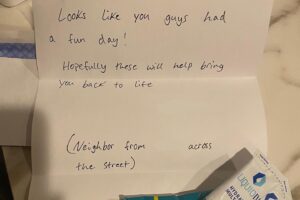 Looks like you guys had
a fun day!
Hopefully these will help bring
you back to life
(Neighbor from across
the street)
LIQUID